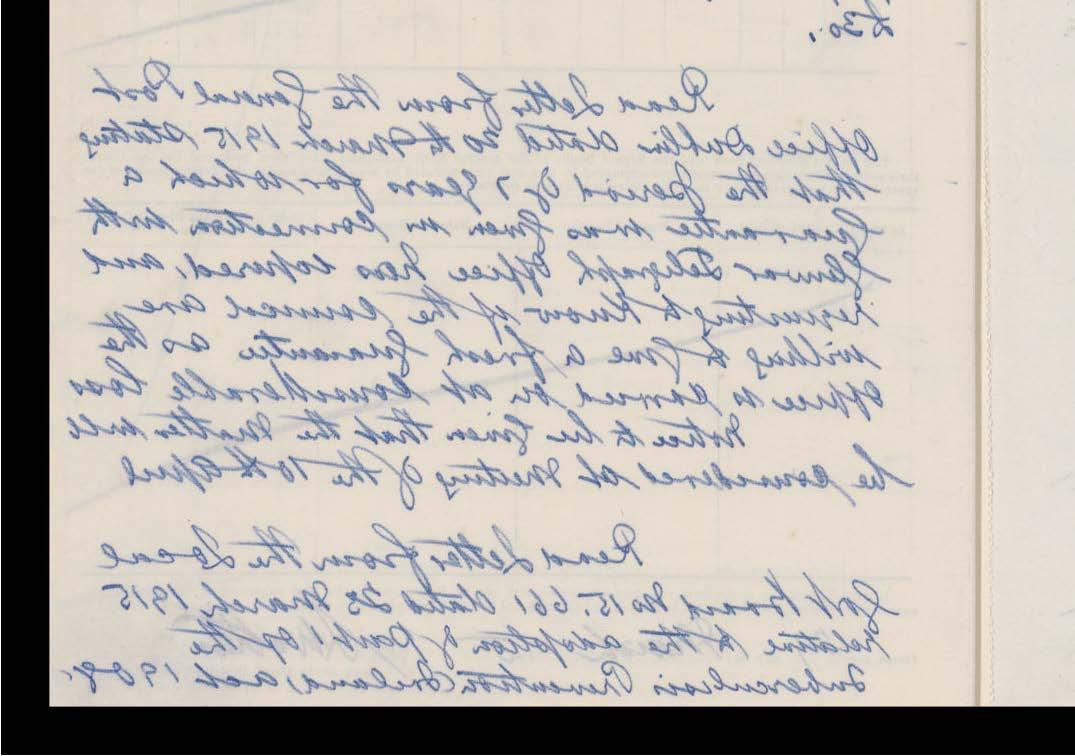 £30.
Read Letter from the General Post
Office Dublin dated 20th March 1915 stating
that the period of 7 years for which a
Guarantee was given in connection with
Telegraph Office has expired, and
requesting to know if the Council are
willing to give a fresh Guarantee as the
Office is carried on at considerable loss
Notice to be given that the Matter will
be considered at Meeting of the 10th April
Read Letter from the Local
Govt Board No 15.661 dated 23 March, 1915
relative to the adoption of part 1 of the
Tuberculosis Prevention Ireland, act 1908.